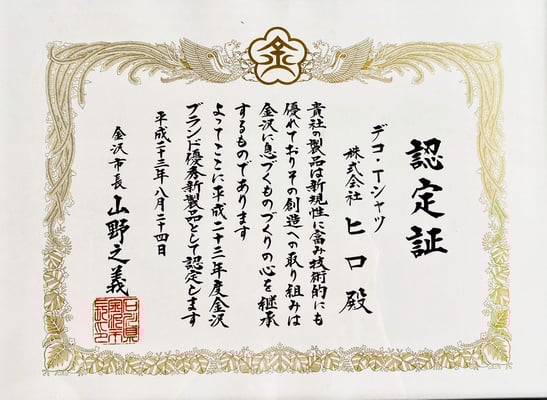 金
認定証
デコ・Tシャツ
株式会社 ヒロ 殿
貴社の製品は新規性に富み技術的にも
優れておりその創造への取り組みは
金沢に息づくものづくりの心を継承
するものであります
よってここに平成二十三年度金沢
ブランド優秀新製品として認定します
平成二十三年八月二十四日
金沢市長 山野之義